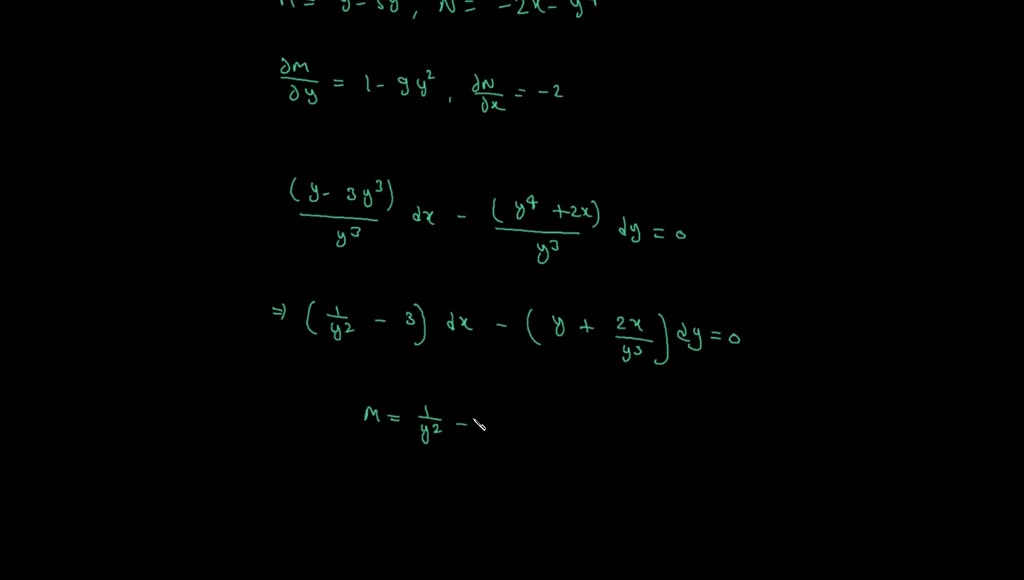 M = y - 3y³, N = -2x - y⁴
∂M/∂y = 1 - 9y², ∂N/∂x = -2
(y - 3y³)/y³ dx - (y⁴ + 2x)/y³ dy = 0
⇒ (1/y² - 3) dx - (y + 2x/y³) dy = 0
M = 1/y² -